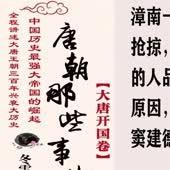 唐朝那些事
【大唐开国卷】
中国历史最强大帝国的崛起
全程讲述大唐王朝三百年兴衰大历史
冬
漳南一
抢掠，
的人品
原因，
窦建德